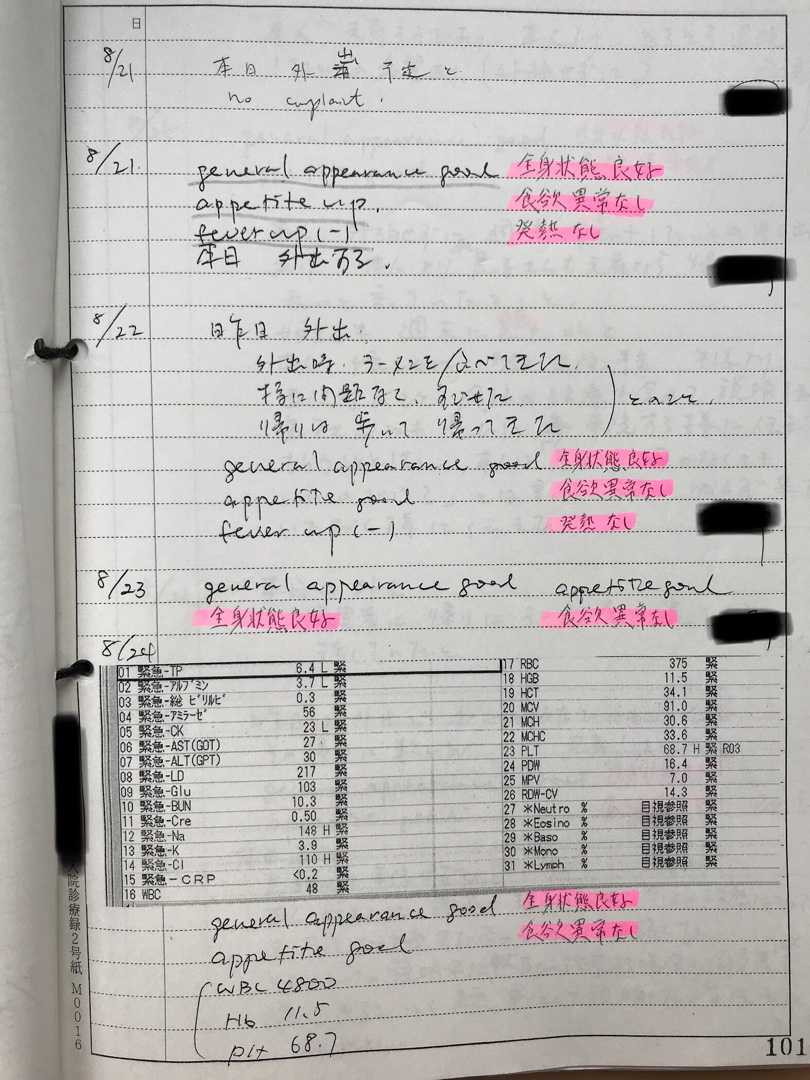 日
8/21
本日 外出 予定
no complaint.
8/21.
general appearance good 全身状態良好
appetite up. 食欲異常なし
fever up (-) 発熱なし
本日 外出
8/22
昨日 外出.
外出時. ラーメンを食べてきた.
特に問題なく、
帰りは歩いて帰ってきた
とのこと.
general appearance good 全身状態良好
appetite good 食欲異常なし
fever up (-) 発熱なし
8/23 general appearance good appetite good
全身状態良好 食欲異常なし
8/24
01 緊急-TP 6.4 L 緊
02 緊急-アルブミン 3.7 L 緊
03 緊急-総ビリルビ 0.3 緊
04 緊急-アミラーゼ 56 緊
05 緊急-CK 23 L 緊
06 緊急-AST(GOT) 27 緊
07 緊急-ALT(GPT) 30 緊
08 緊急-LD 217 緊
09 緊急-Glu 103 緊
10 緊急-BUN 10.3 緊
11 緊急-Cre 0.50 緊
12 緊急-Na 148 H 緊
13 緊急-K 3.9 緊
14 緊急-Cl 110 H 緊
15 緊急-CRP <0.2 緊
16 WBC 48 緊
17 RBC 375 緊
18 HGB 11.5 緊
19 HCT 34.1 緊
20 MCV 91.0 緊
21 MCH 30.6 緊
22 MCHC 33.6 緊
23 PLT 68.7 H 緊 R03
24 PDW 16.4 緊
25 MPV 7.0 緊
26 RDW-CV 14.3 緊
27 *Neutro % 目視参照 緊
28 *Eosino % 目視参照 緊
29 *Baso % 目視参照 緊
30 *Mono % 目視参照 緊
31 *Lymph % 目視参照 緊
general appearance good 全身状態良好
appetite good 食欲異常なし
WBC 4800
Hb 11.5
plt 68.7
院診療録2号紙 M0016
101